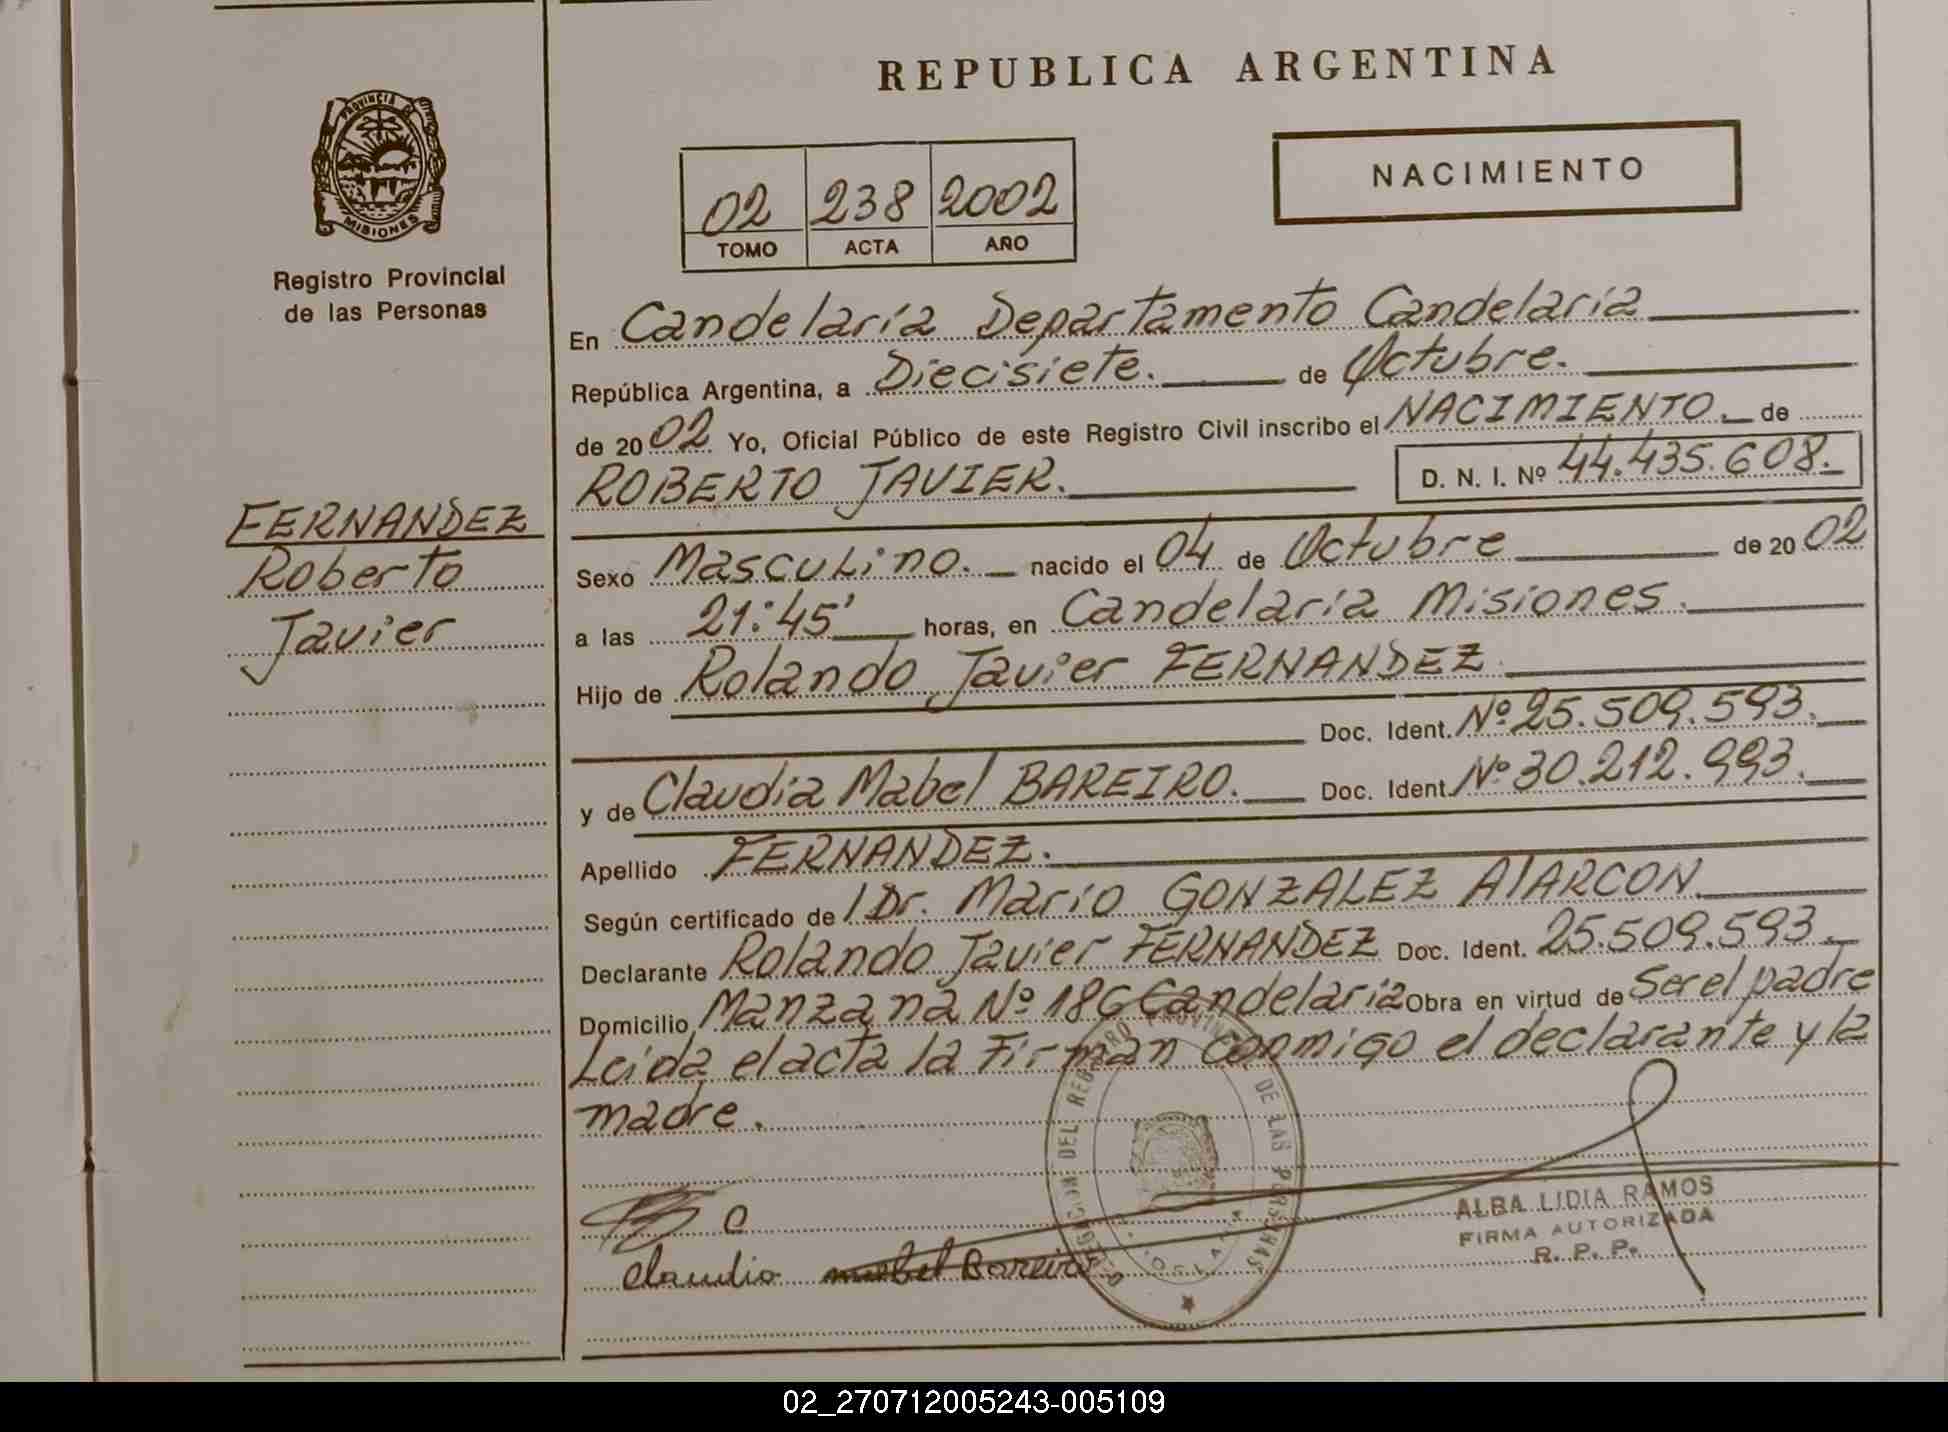 REPUBLICA ARGENTINA
PROVINCIA DE MISIONES
Registro Provincial
de las Personas
02 238 2002
TOMO ACTA AÑO
NACIMIENTO
FERNANDEZ
Roberto
Javier
En Candelaria Departamento Candelaria
República Argentina, a Diecisiete. de Octubre.
de 2002 Yo, Oficial Público de este Registro Civil inscribo el NACIMIENTO. de
ROBERTO JAVIER. D. N. I. Nº 44.435.608.
Sexo Masculino. nacido el 04 de Octubre de 2002
a las 21:45' horas, en Candelaria Misiones.
Hijo de Rolando Javier FERNANDEZ.
Doc. Ident. Nº 25.509.593.
y de Claudia Mabel BAREIRO. Doc. Ident. Nº 30.212.993.
Apellido FERNANDEZ.
Según certificado de / Dr. Mario GONZALEZ AlARCON.
Declarante Rolando Javier FERNANDEZ Doc. Ident. 25.509.593.
Domicilio Manzana Nº 186 Candelaria Obra en virtud de Ser el padre
Leida el acta la Firman conmigo el declarante y la
madre.
DEL REGISTRO PROVINCIAL DE LAS PERSONAS
ALBA LIDIA RAMOS
FIRMA AUTORIZADA
R. P. P.
Claudia Mabel Bareiro
02_270712005243-005109